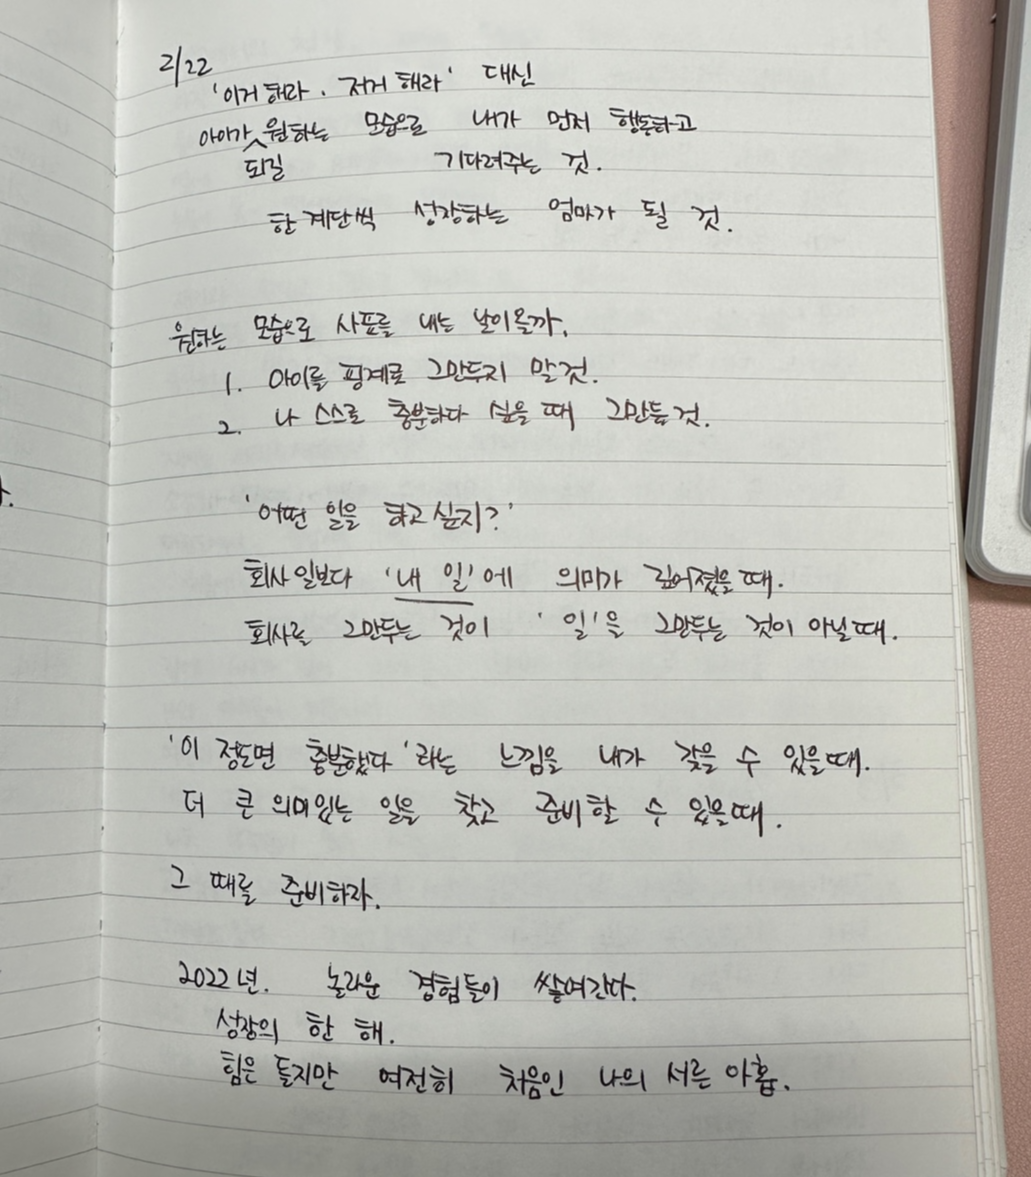 2/22
'이거 해라. 저거 해라' 대신
아이가 원하는 모습으로 내가 먼저 행동하고
되길 기다려주는 것.
한 계단씩 성장하는 엄마가 될 것.
원하는 모습으로 사표를 내는 날이 올까.
1. 아이를 핑계로 그만두지 말 것.
2. 나 스스로 충분하다 싶을 때 그만둘 것.
'어떤 일을 하고 싶지?'
회사 일보다 '내 일'에 의미가 깊어졌을 때.
회사를 그만두는 것이 '일'을 그만두는 것이 아닐 때.
'이 정도면 충분했다'라는 느낌을 내가 갖을 수 있을 때.
더 큰 의미있는 일을 찾고 준비할 수 있을 때.
그 때를 준비하라.
2022년. 놀라운 경험들이 쌓여간다.
성장의 한 해.
힘은 들지만 여전히 처음인 나의 서른 아홉.